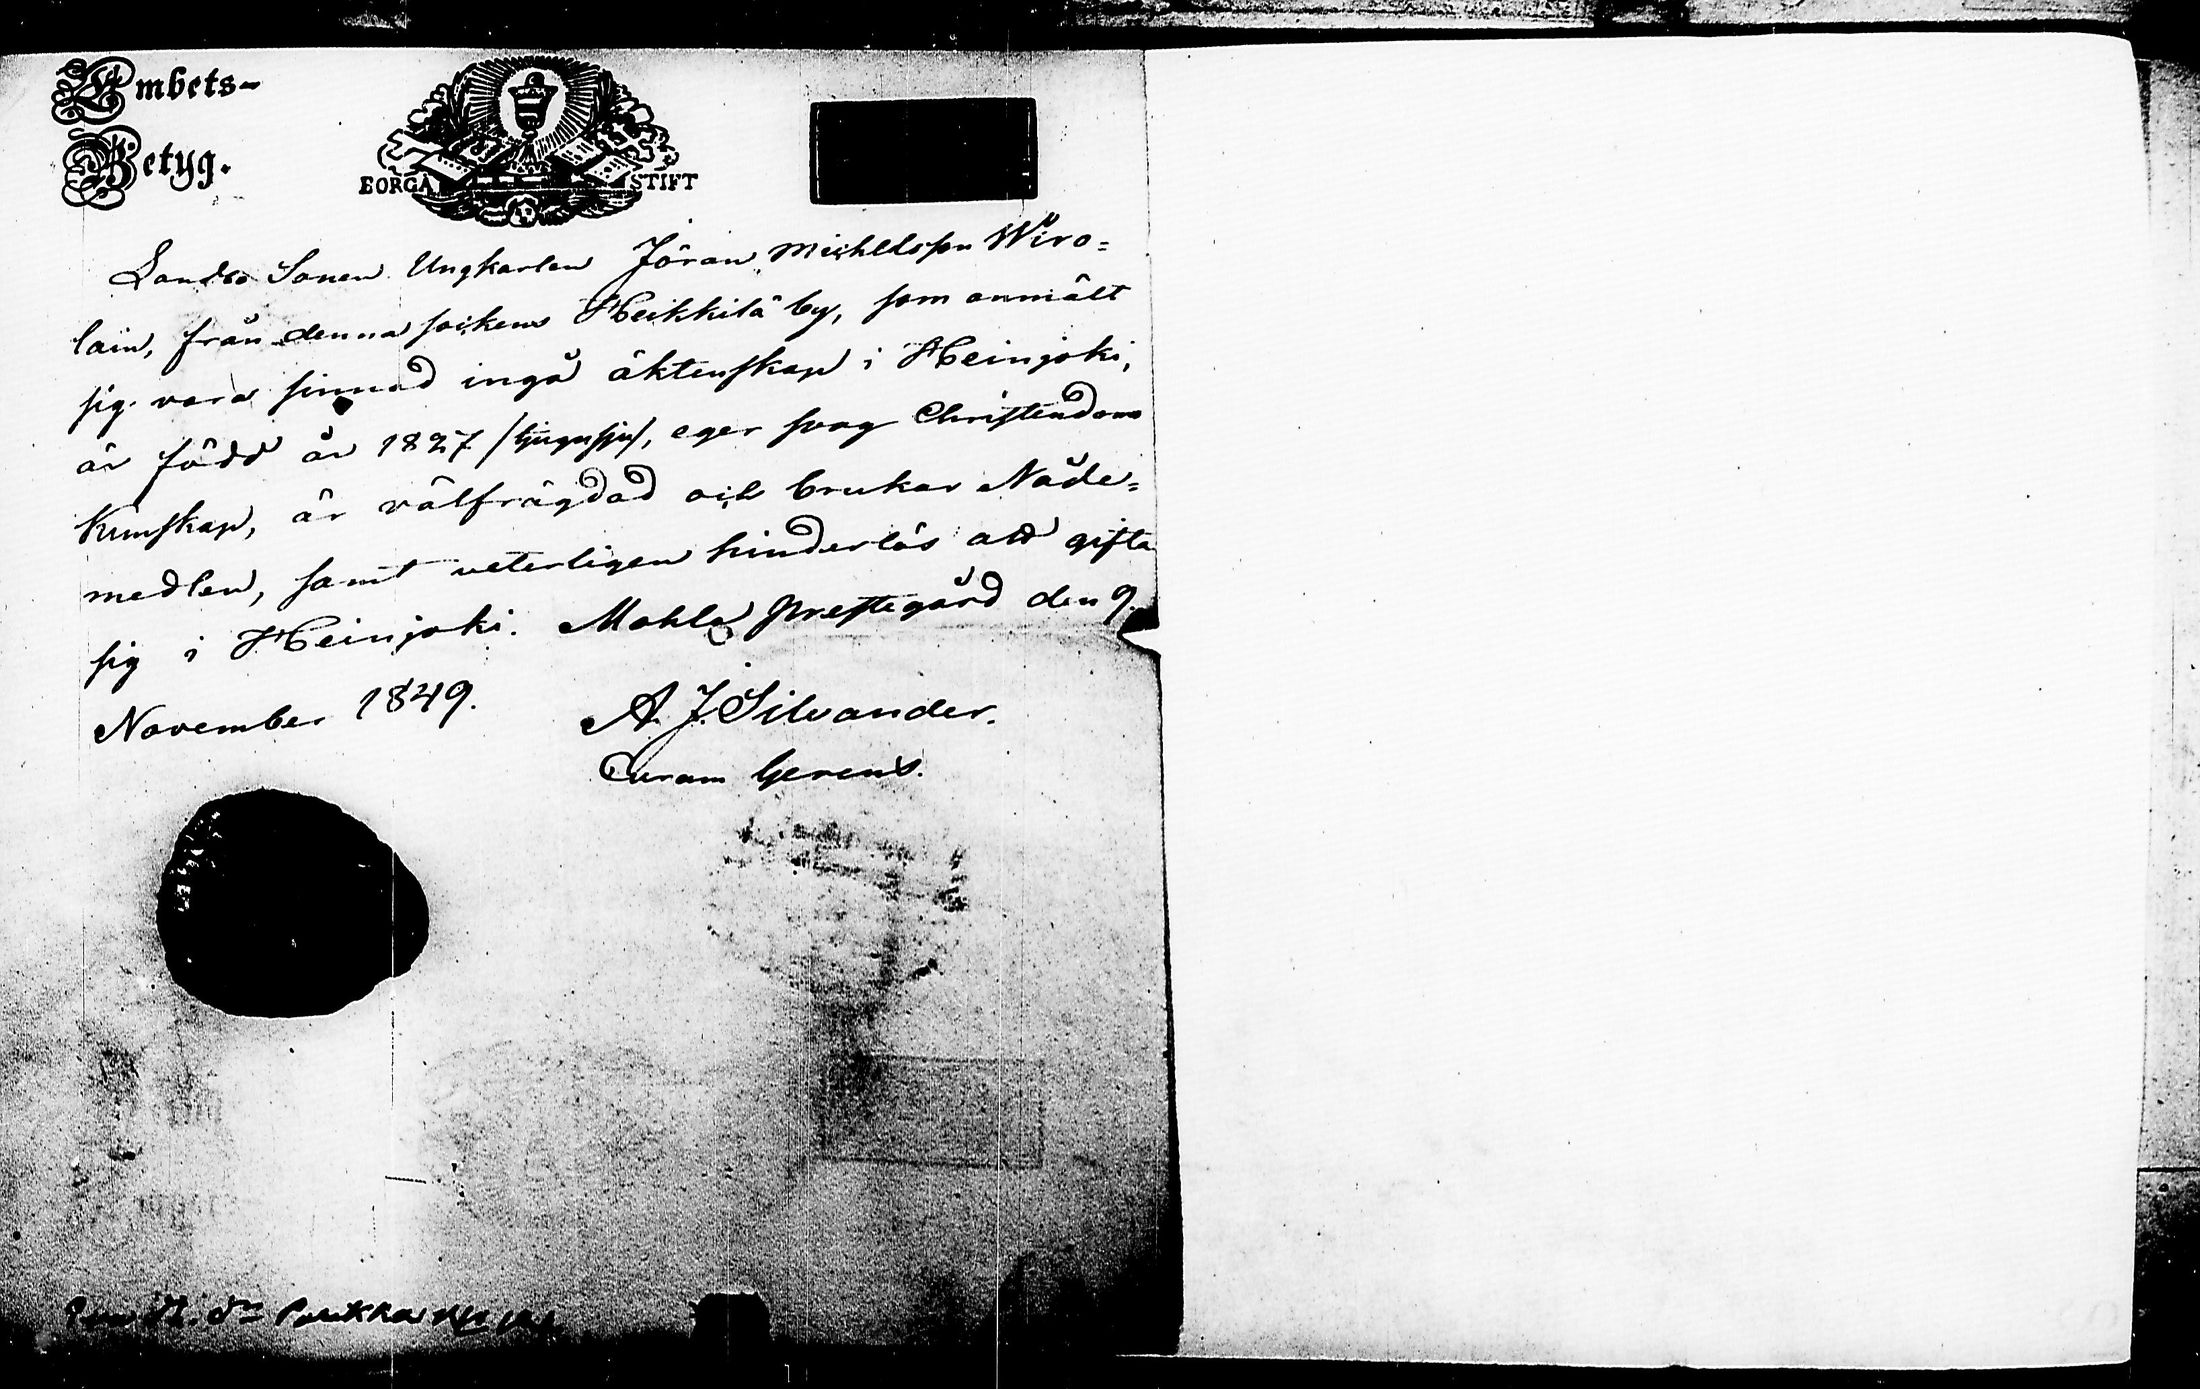 Embets-
Betyg.
BORGÅ STIFT
Bonde Sonen Ungkarlen Jöran Michelsson Wiro=
lain, från denna sockens Heikkilä by, som anmält
sig vara sinnad ingå äktenskap i Heinjoki,
är född år 1827 /tjugusju/, eger svag Christendoms
Kunskap, är välfrägdad och brukar Nåde=
medlen, samt veterligen hinderlös att gifta
sig i Heinjoki. Mohla Prestegård den 9.
November 1849.
A. J. Silvander.
Curam Gerens.